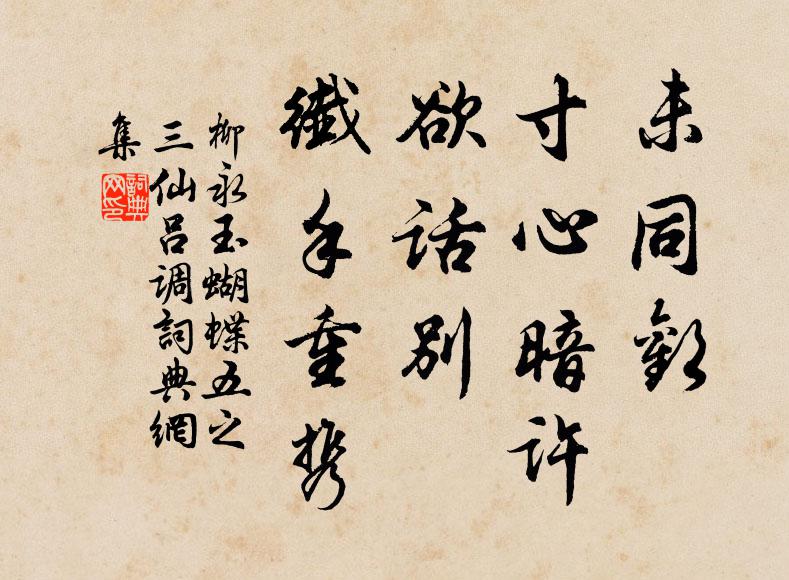 未同歡
寸心暗許
欲話別
纖手重攜
柳永玉蝴蝶五之
三仙呂調詞典網
集
詞典
网印